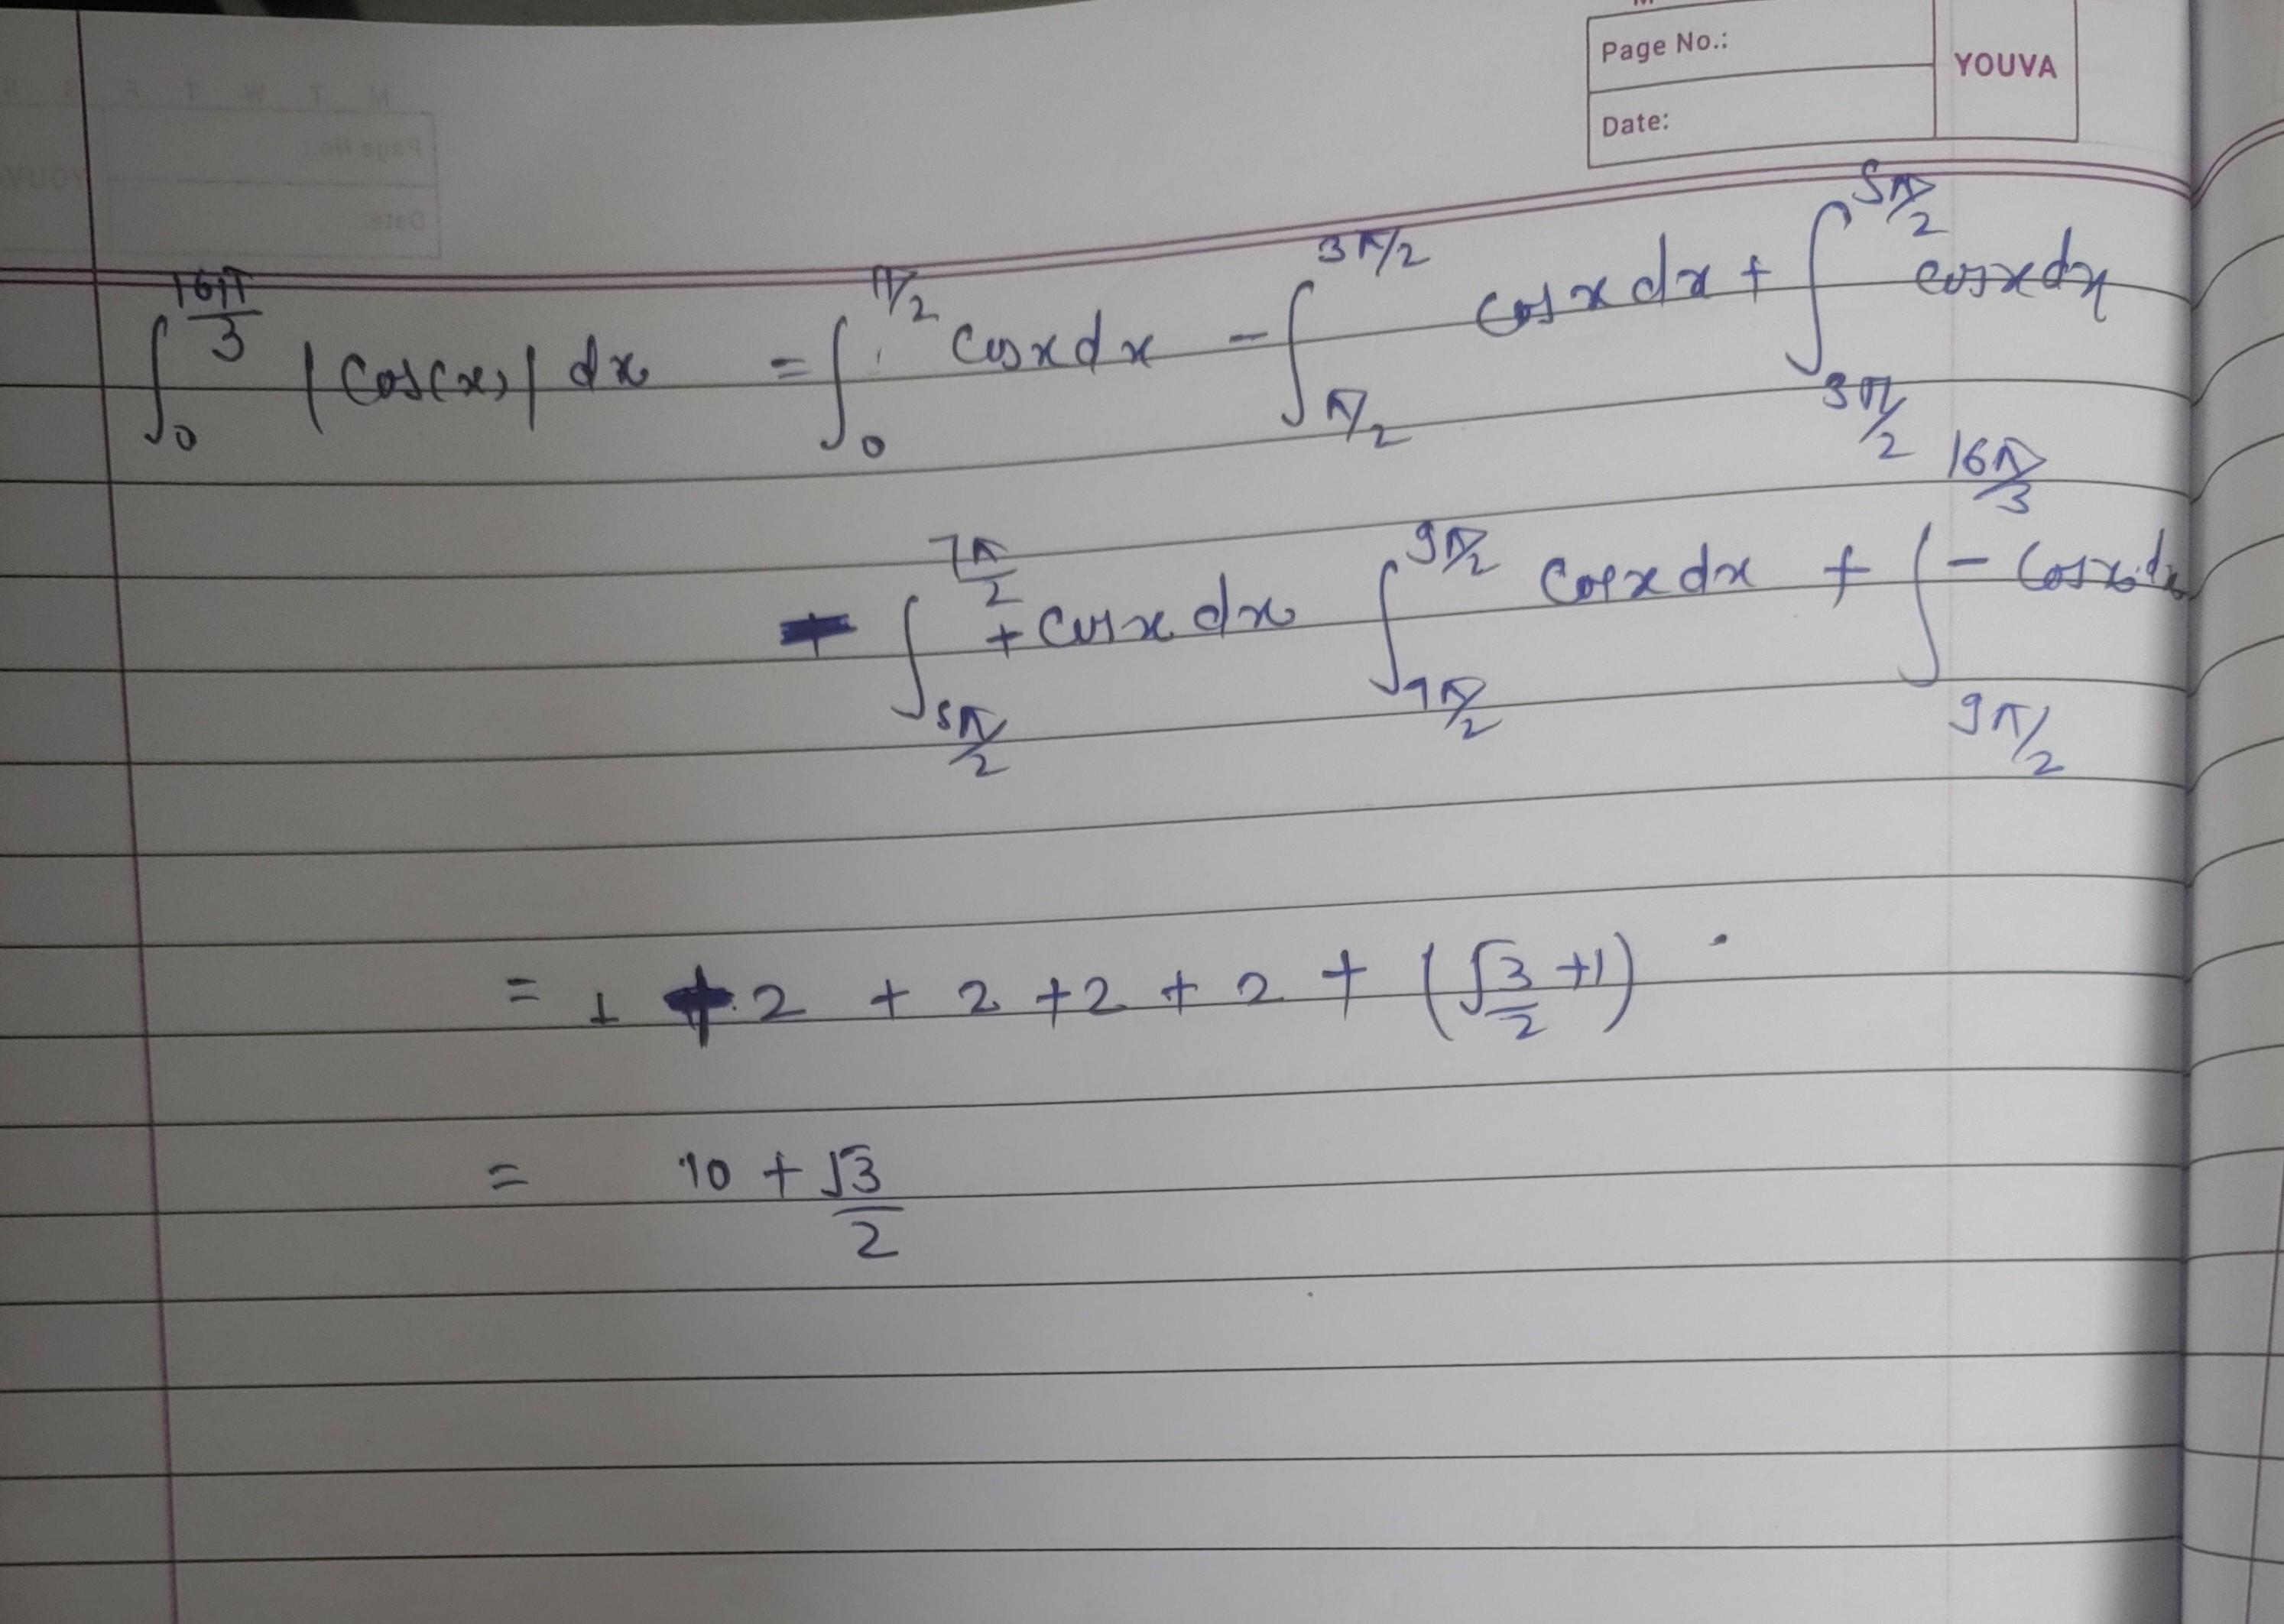 Page No.:
YOUVA
Date:
∫₀^(16π/3) |cos(x)| dx = ∫₀^(π/2) cosx dx - ∫_(π/2)^(3π/2) cosx dx + ∫_(3π/2)^(5π/2) cosx dx
- ∫_(5π/2)^(7π/2) + cosx dx ∫_(7π/2)^(9π/2) cosx dx + ∫_(9π/2)^(16π/3) - cosx dx
= 1 + 2 + 2 + 2 + 2 + (√3/2 + 1)
= 10 + √3/2